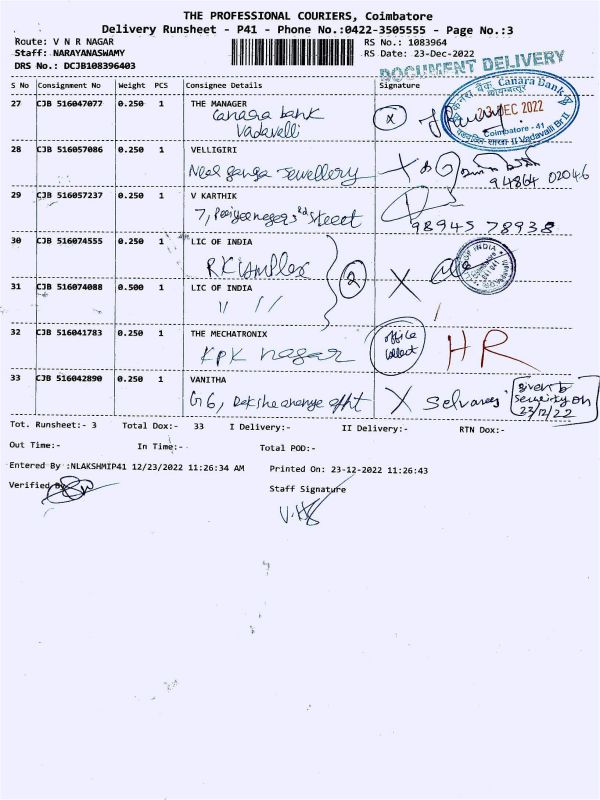 THE PROFESSIONAL COURIERS, Coimbatore
Delivery Runsheet - P41 - Phone No.:0422-3505555 - Page No.:3
Route: V N R NAGAR
RS No.: 1083964
Staff: NARAYANASWAMY
RS Date: 23-Dec-2022
DRS No.: DCJB108396403
DOCUMENT DELIVERY
S No Consignment No Weight PCS Consignee Details Signature
27 CJB 516047077 0.250 1 THE MANAGER
Canara bank
Vadavelli
केनरा बैंक Canara Bank
23 DEC 2022
Coimbatore - 41
II Vadavalli Br II
28 CJB 516057086 0.250 1 VELLIGIRI
Neel ganga Jewellery
94864 02046
29 CJB 516057237 0.250 1 V KARTHIK
7, 2nd street
98945 78938
30 CJB 516074555 0.250 1 LIC OF INDIA
2
31 CJB 516074088 0.500 1 LIC OF INDIA
" "
32 CJB 516041783 0.250 1 THE MECHATRONIX
KPK nagar
office collect
HR
33 CJB 516042890 0.250 1 VANITHA
G6,
X Selvaraj
given to
Security on
23/12/22
Tot. Runsheet:- 3 Total Dox:- 33 I Delivery:- II Delivery:- RTN Dox:-
Out Time:- In Time:- Total POD:-
Entered By :NLAKSHMIP41 12/23/2022 11:26:34 AM Printed On: 23-12-2022 11:26:43
Verified By
Staff Signature